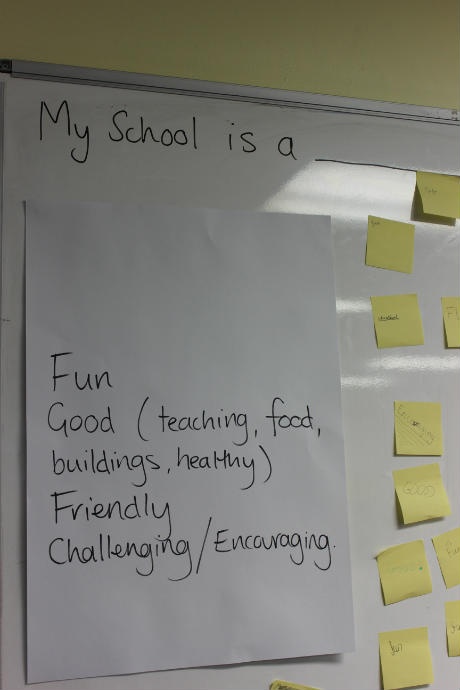 My School is a
Fun
Good (teaching, food,
buildings, healthy)
Friendly
Challenging/Encouraging.
Encouraging
GOOD
fun